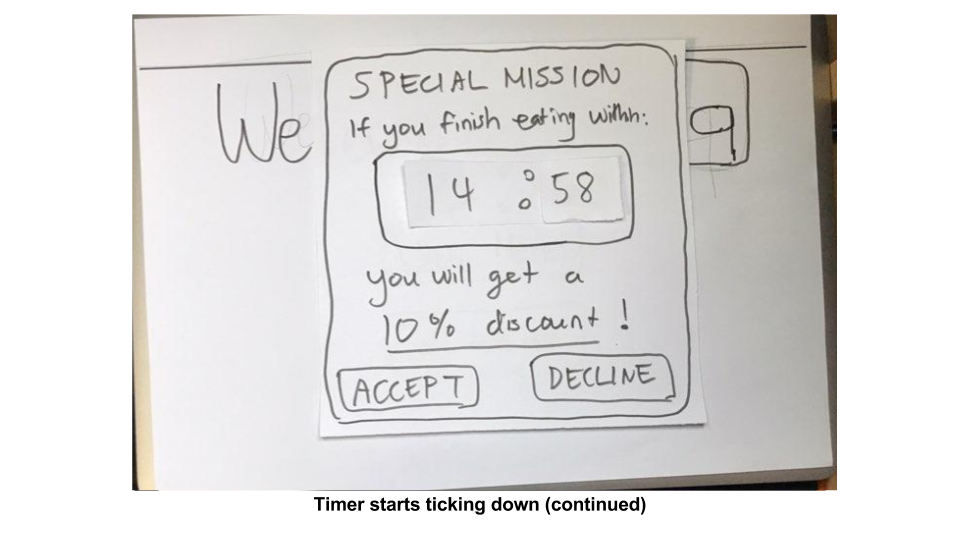 SPECIAL MISSION
We
If you finish eating within:
14 : 58
you will get a
10% discount !
ACCEPT
DECLINE
Timer starts ticking down (continued)